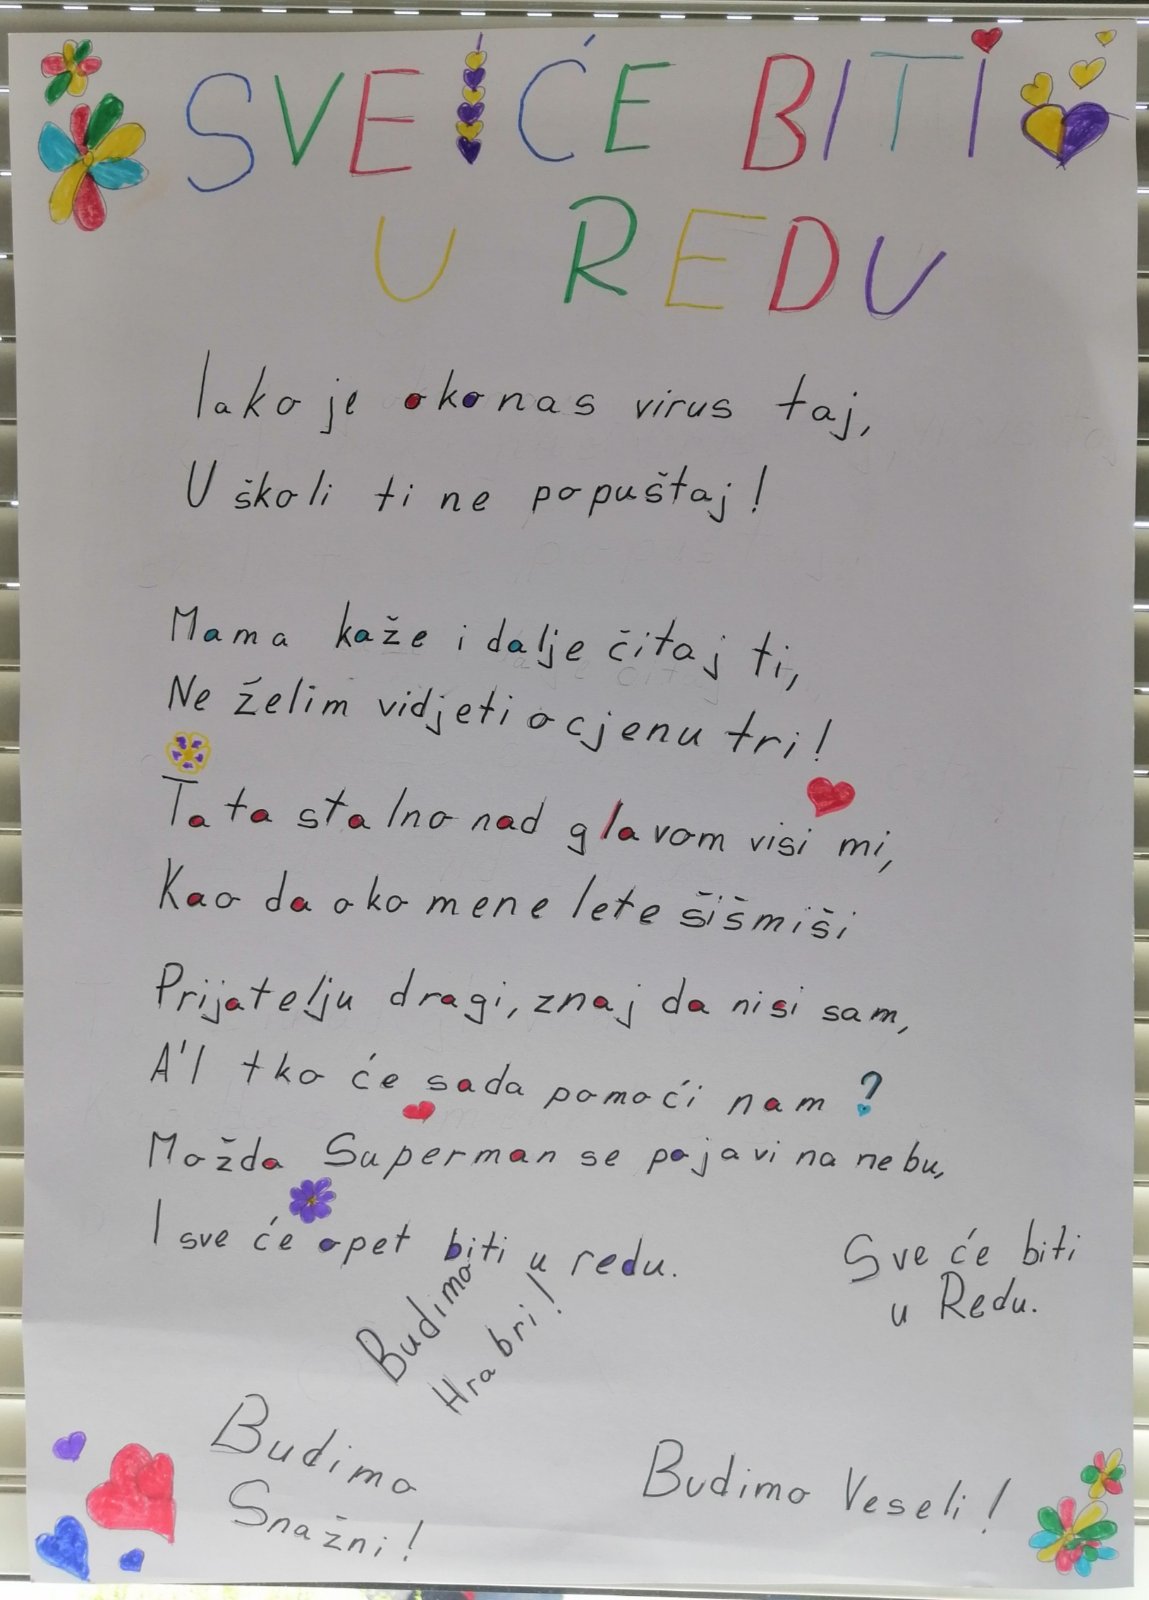 SVE ĆE BITI
U REDU
Iako je oko nas virus taj,
U školi ti ne popuštaj!
Mama kaže i dalje čitaj ti,
Ne želim vidjeti ocjenu tri!
Tata stalno nad glavom visi mi,
Kao da oko mene lete šišmiši
Prijatelju dragi, znaj da nisi sam,
A'l tko će sada pomoći nam?
Možda Superman se pojavi na nebu,
I sve će opet biti u redu.
Sve će biti
u Redu.
Budimo
Hrabri!
Budimo
Snažni!
Budimo Veseli!